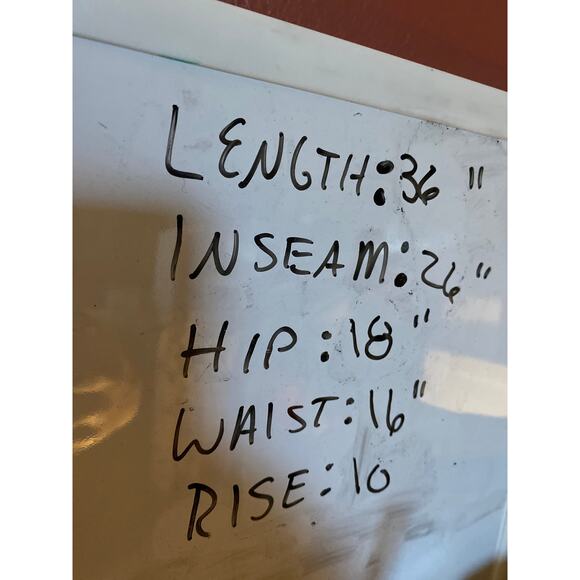 LENGTH: 36 "
INSEAM: 26"
HIP: 18"
WAIST: 16"
RISE: 10